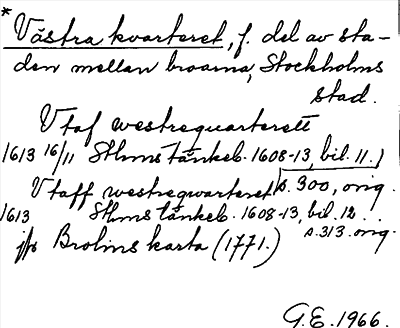 * Västra kvarteret, f. del av sta-
den mellan broarna, Stockholms
stad.
Vtaf westrequarterett
1613 16/11 Sthms tänkeb. 1608-13, bil. 11.)
s. 300, orig.
Vtaff westreqvarteret
1613 Sthms tänkeb. 1608-13, bil. 12.
s. 313. orig.
jfr Brolins karta (1771.)
G.E. 1966.